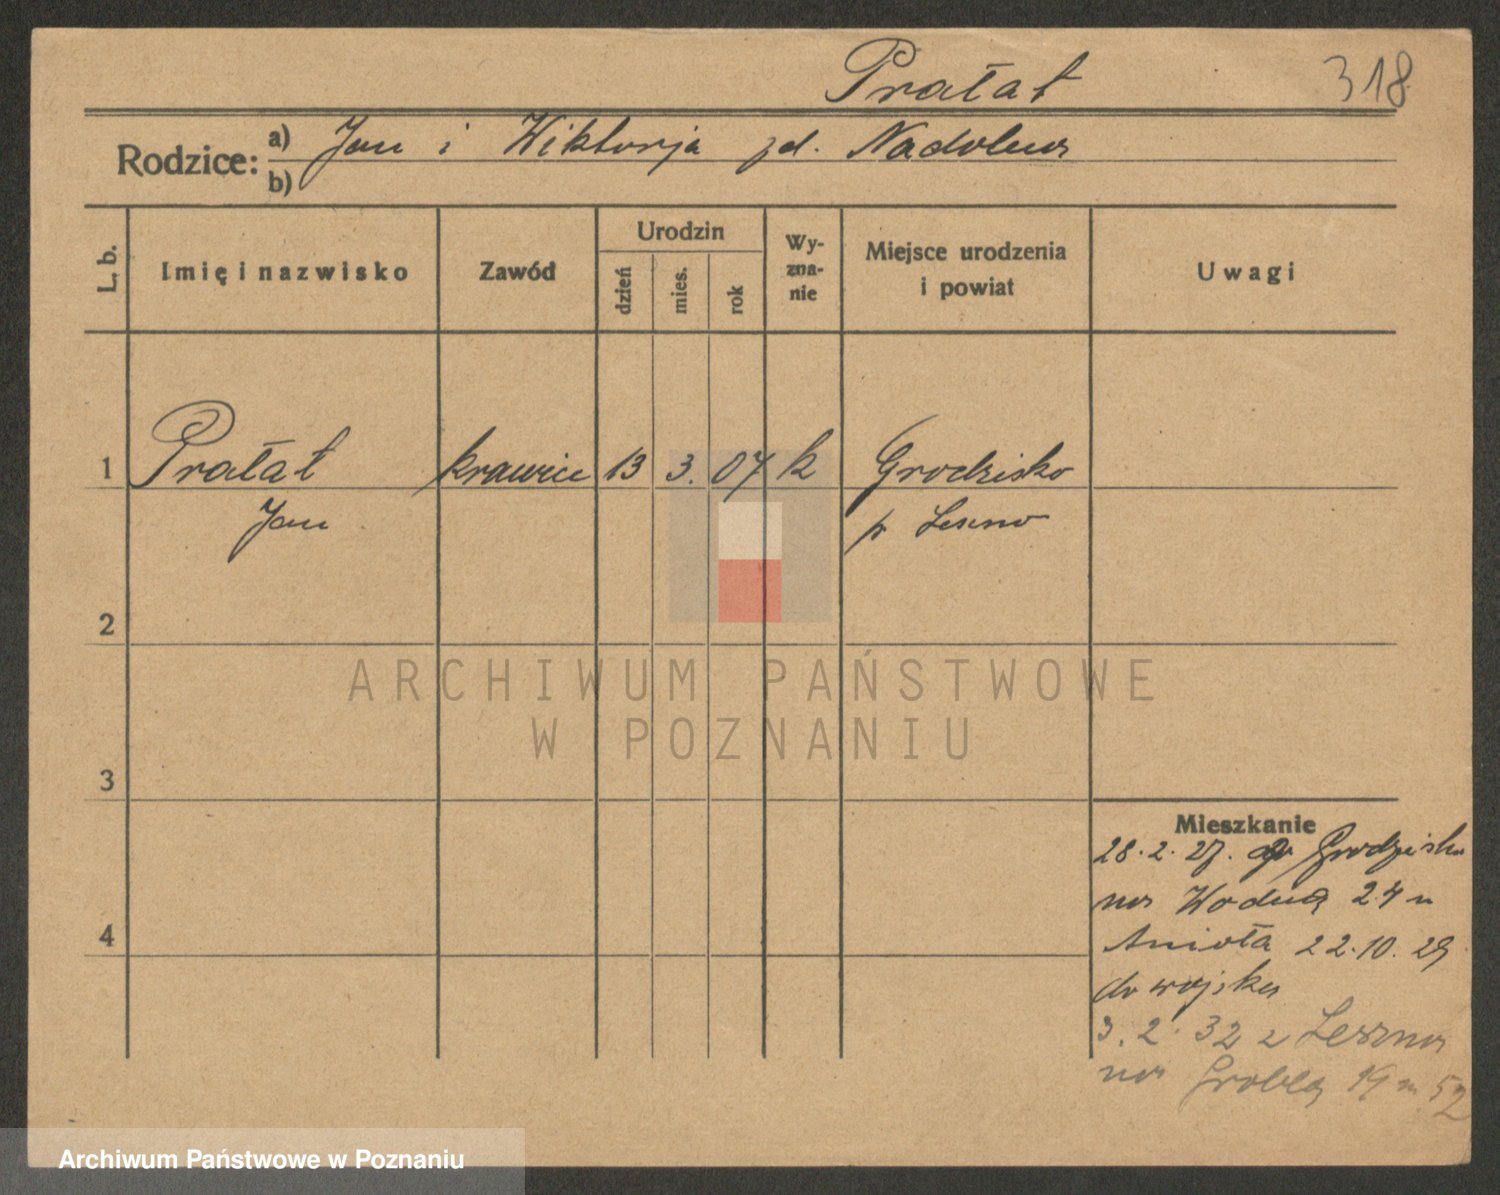 Prałat 318
Rodzice: a) Jan i Wiktorja zd. Nadolna
b)
L. b.
Imię i nazwisko
Zawód
Urodzin
dzień
mies.
rok
Wy-
zna-
nie
Miejsce urodzenia
i powiat
Uwagi
1 Prałat krawiec 13 3. 07 k Grodzisko
Jan p Leszno
2
ARCHIWUM PAŃSTWOWE
W POZNANIU
3
Mieszkanie
28.2.27. Grodziska
na Wodną 24 u
4
Anioła 22.10.29
do wojska
3.2.32 z Leszna
na Groblą 19 m 52
Archiwum Państwowe w Poznaniu